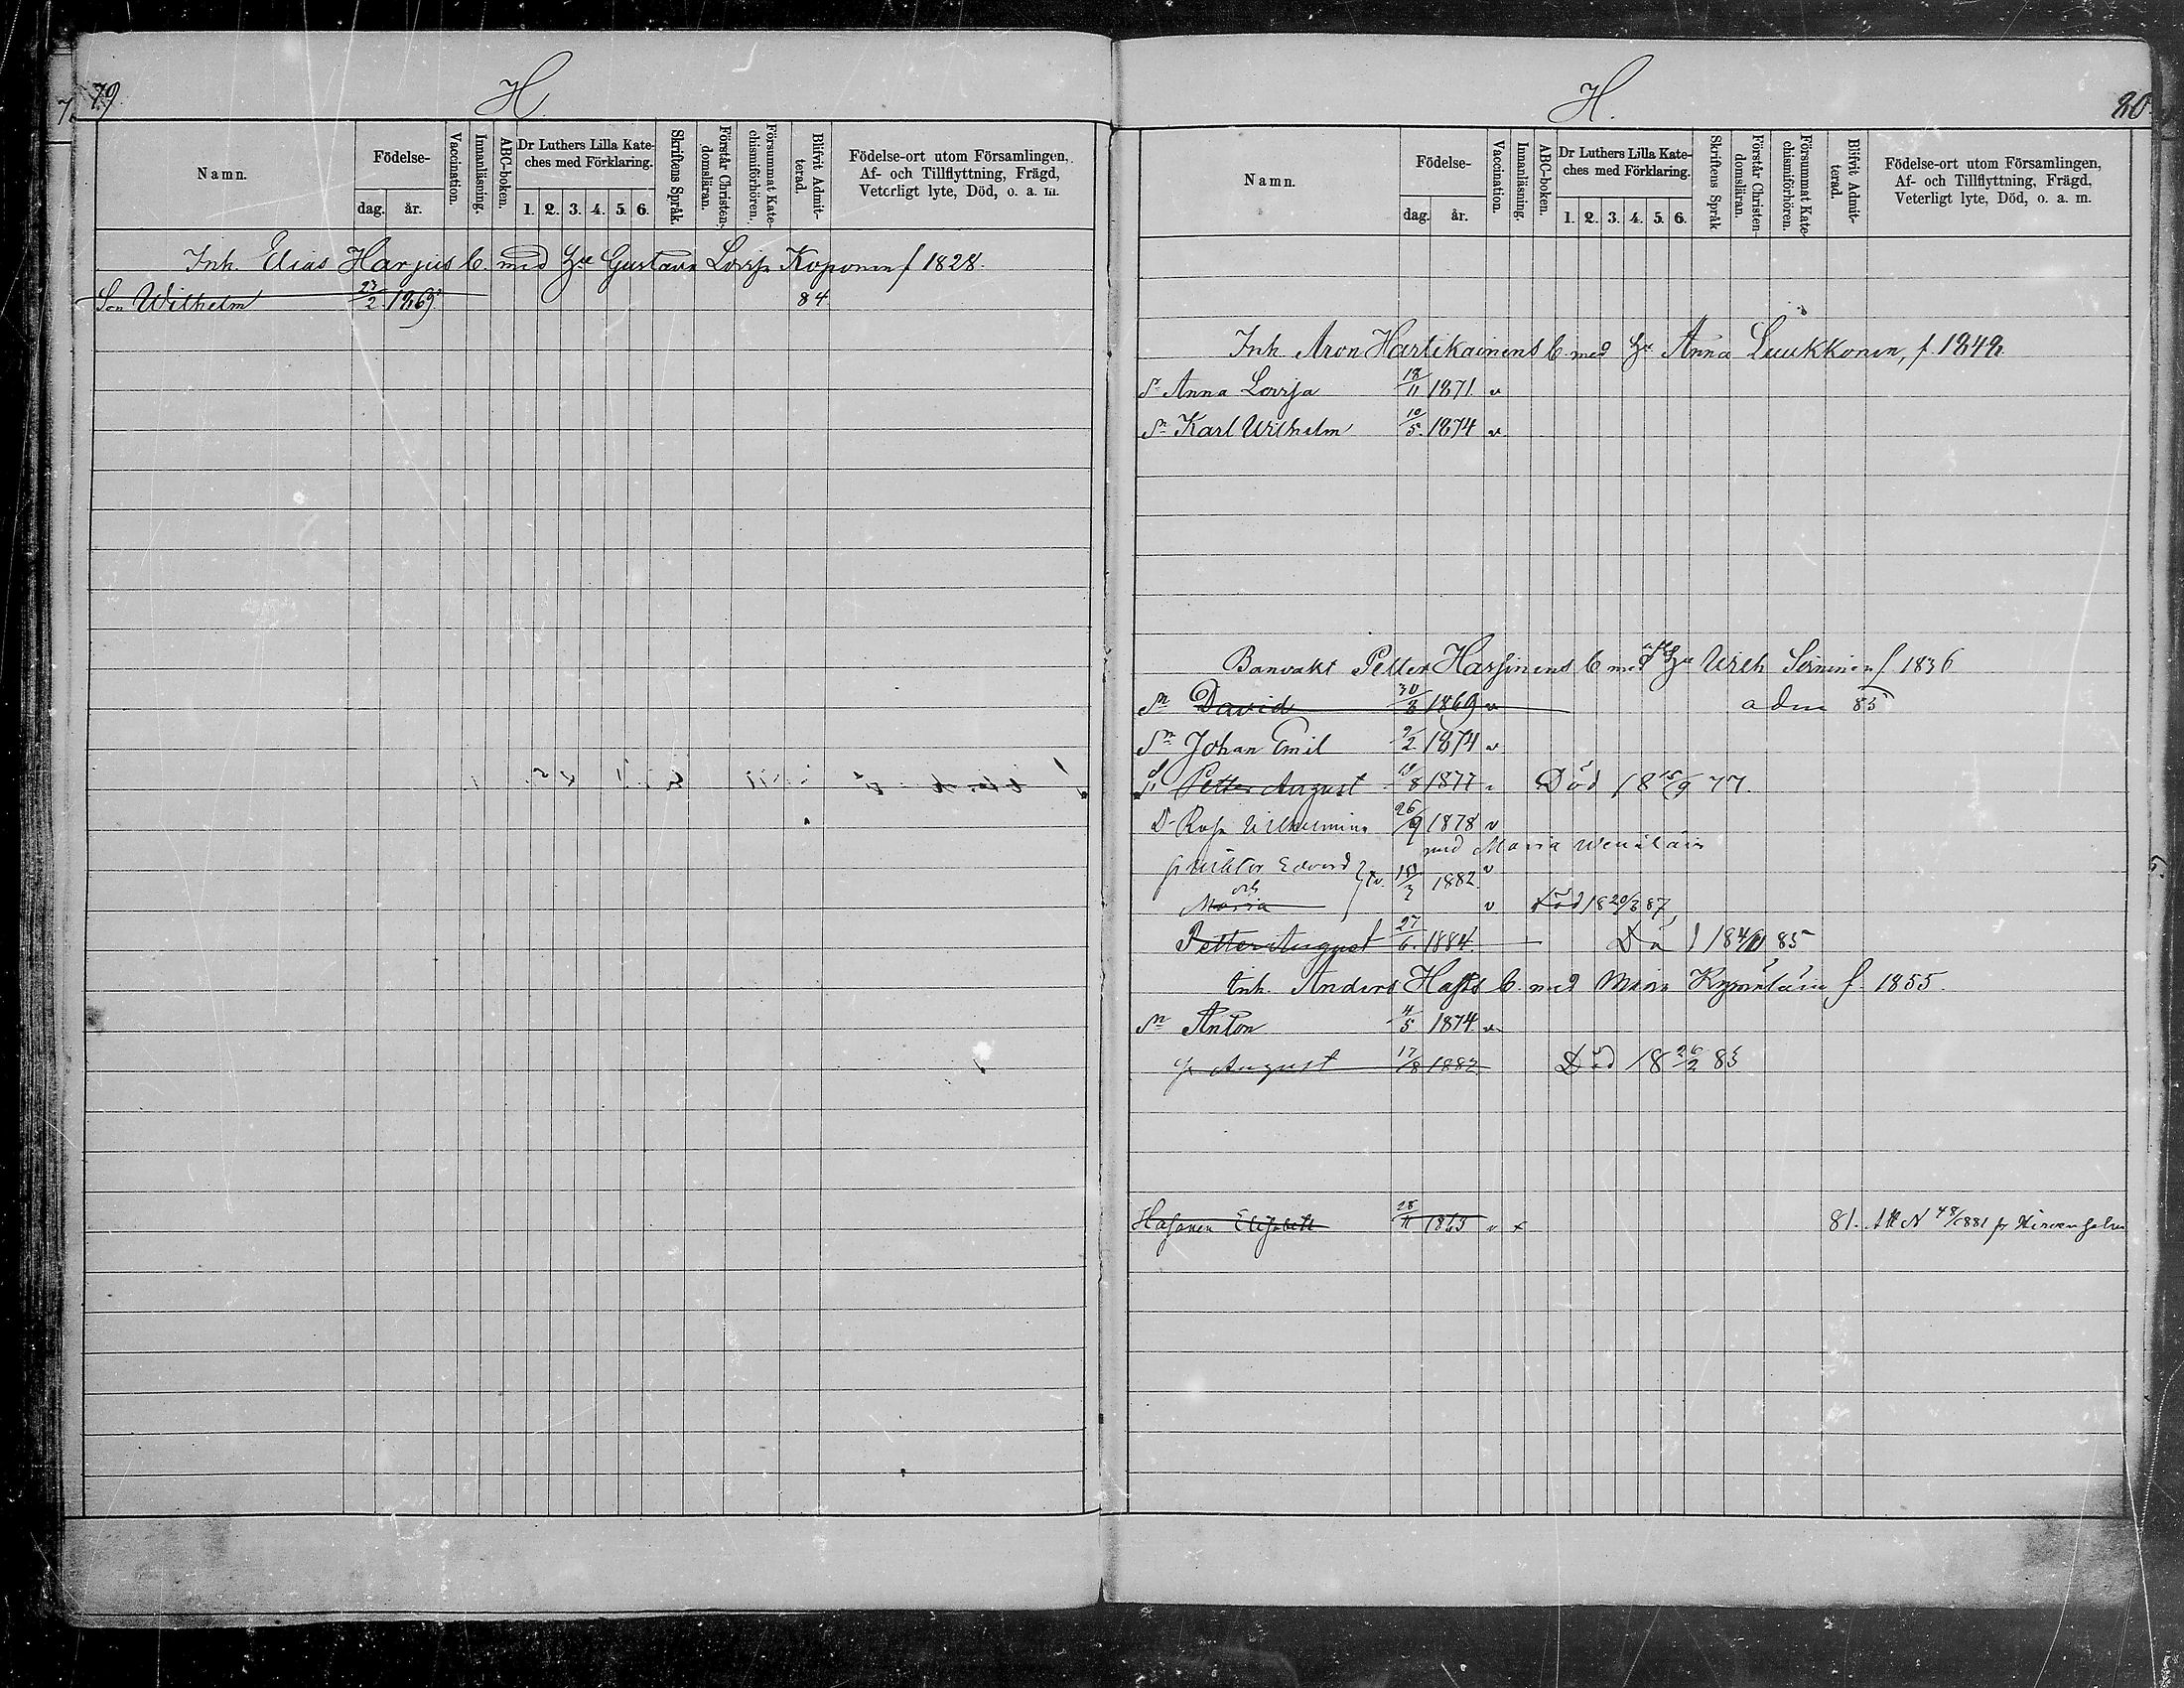 79.
H.
Namn.
Födelse-
dag. år.
Vaccination.
Innanläsning.
ABC-boken.
Dr Luthers Lilla Kate-
ches med Förklaring.
1. 2. 3. 4. 5. 6.
Skriftens Språk.
Förstår Christen-
domsläran.
Försummat Kate-
chismiförhören.
Blifvit Admit-
terad.
Födelse-ort utom Församlingen,
Af- och Tillflyttning, Frägd,
Veterligt lyte, Död, o. a. m.
Inh. Elias Harjus b. med Hu Gustava Lovisa Koponen f 1828.
Son Wilhelm 27/2 1869. 84
H.
80
Namn.
Födelse-
dag. år.
Vaccination.
Innanläsning.
ABC-boken.
Dr Luthers Lilla Kate-
ches med Förklaring.
1. 2. 3. 4. 5. 6.
Skriftens Språk.
Förstår Christen-
domsläran.
Försummat Kate-
chismiförhören.
Blifvit Admit-
terad.
Födelse-ort utom Församlingen,
Af- och Tillflyttning, Frägd,
Veterligt lyte, Död, o. a. m.
Inh. Aron Hartikainens b. med Hu Anna Luukkonen, f. 1848.
Anna Lovisa 18/11 1871. v
Sn Karl Wilhelm 10/5. 1874 v
Banvakt Petter Harjunens b med Hu Ulrik f 1836
Sn David 30/8 1869 v adm 85
Sn Johan Emil 9/2 1874 v
Petter August 8 1877 Död 18 15/9 77.
D Rosa Wilhelmina 26/9 1878 v
med Maria
Viktor Edvard tv. 1882 v
och
Maria v Död 18 20/3 87,
Petter August 27/6. 1884. Död 18 85
Inh. Anders b. med Maria f. 1855.
Sn Anton 4/5 1874 v
August 17/8 1882 Död 18 26/2 83
Elisabeth 28/11 1865 v x 81.